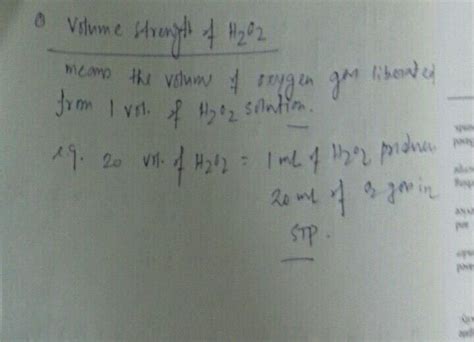 ① Volume strength of H2O2
means the volume of oxygen gas liberated
from 1 vol. of H2O2 solution.
eg. 20 vol. of H2O2 = 1 ml of H2O2 produces
20 ml of O2 gas in
STP.